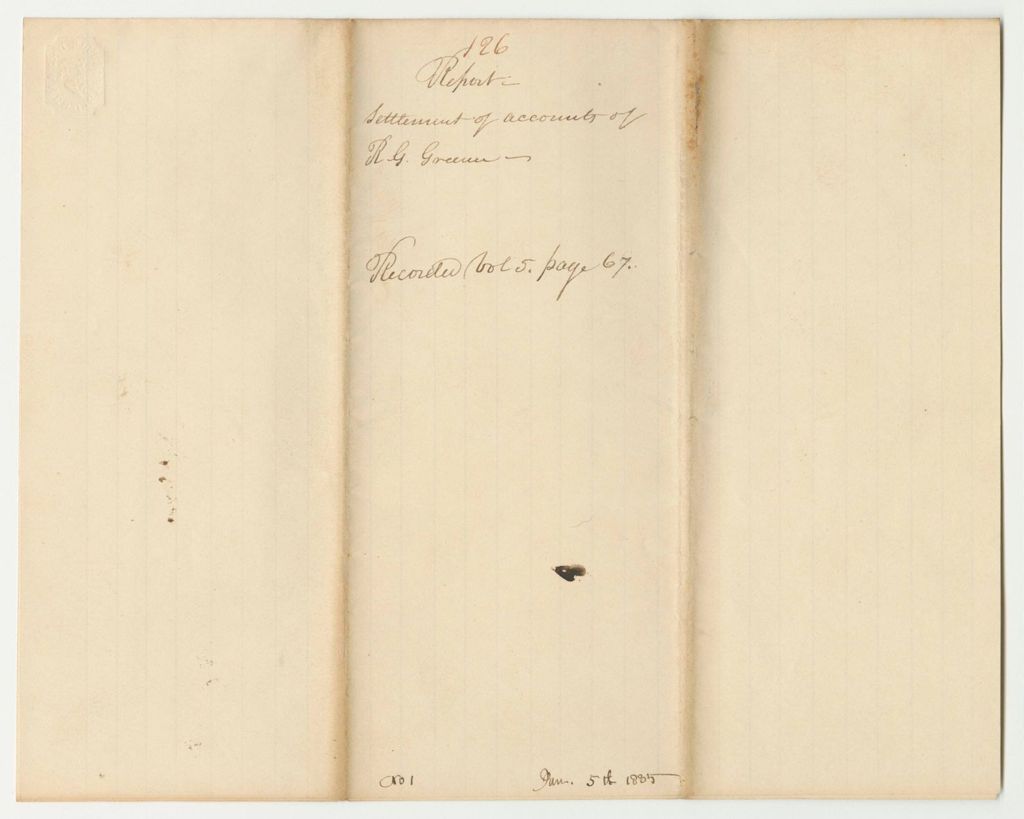 126
Report-
Settlement of accounts of
R. G. Greene -
Recorded Vol 5. page 67.
No 1
Jan. 5th 1835